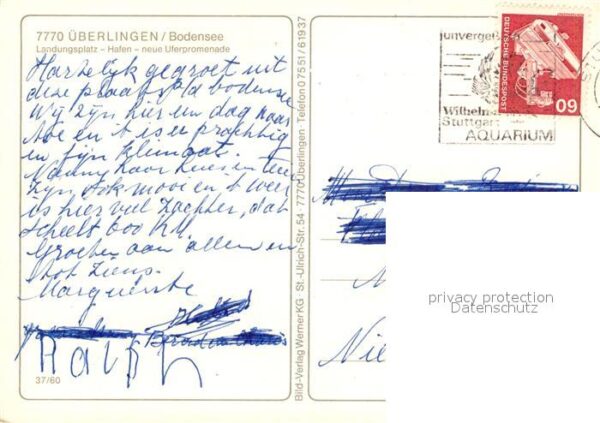 7770 ÜBERLINGEN / Bodensee
Landungsplatz – Hafen – neue Uferpromenade
Hartelijk gegroet uit
deze plaats a/d bodensee
Wij zijn hier een dag naar
toe en t is er prachtig
in fijn klimaat.
zijn, ook mooi en t weer
is hier veel zachter, dat
scheelt 600 KM
Groeten aan allen en
tot ziens
Marguerite
Ralph
37/60
Bild-Verlag Werner KG · St.-Ulrich-Str. 54 · 7770 Überlingen · Telefon 07551/61937
unverge
Wilhelm
Stuttgar
AQUARIUM
DEUTSCHE BUNDESPOST
60
privacy protection
Datenschutz